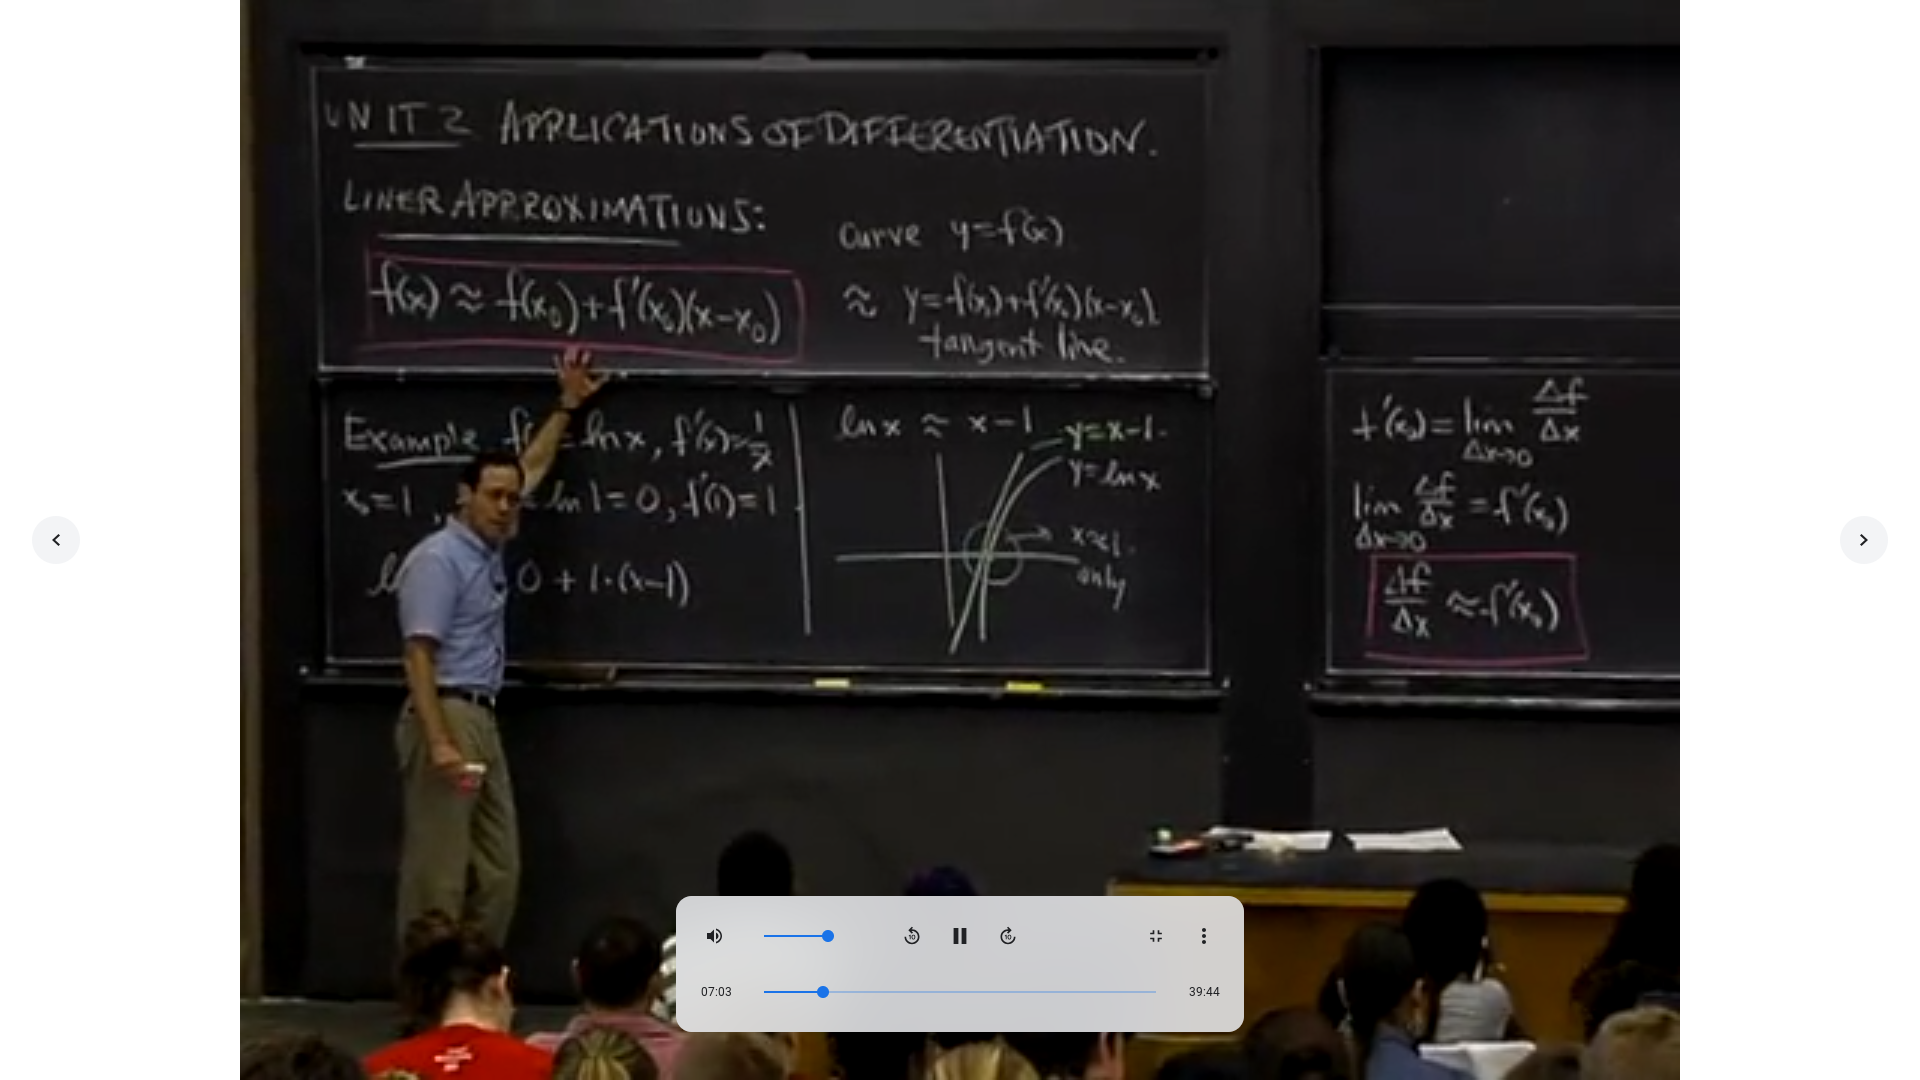 UNIT 2 APPLICATIONS OF DIFFERENTIATION.
LINER APPROXIMATIONS:
f(x) ≈ f(x₀)+f'(x₀)(x-x₀)
Curve y=f(x)
≈ y=f(x₀)+f'(x₀)(x-x₀)
tangent line.
Example ln x, f'(x)=1/x
x₀=1, ln 1=0, f'(1)=1
0 + 1·(x-1)
ln x ≈ x-1
y=x-1
y=ln x
x≈1
only
f'(x₀)= lim Δx→0 Δf/Δx
lim Δx→0 Δf/Δx = f'(x₀)
Δf/Δx ≈ f'(x₀)
10
10
07:03
39:44